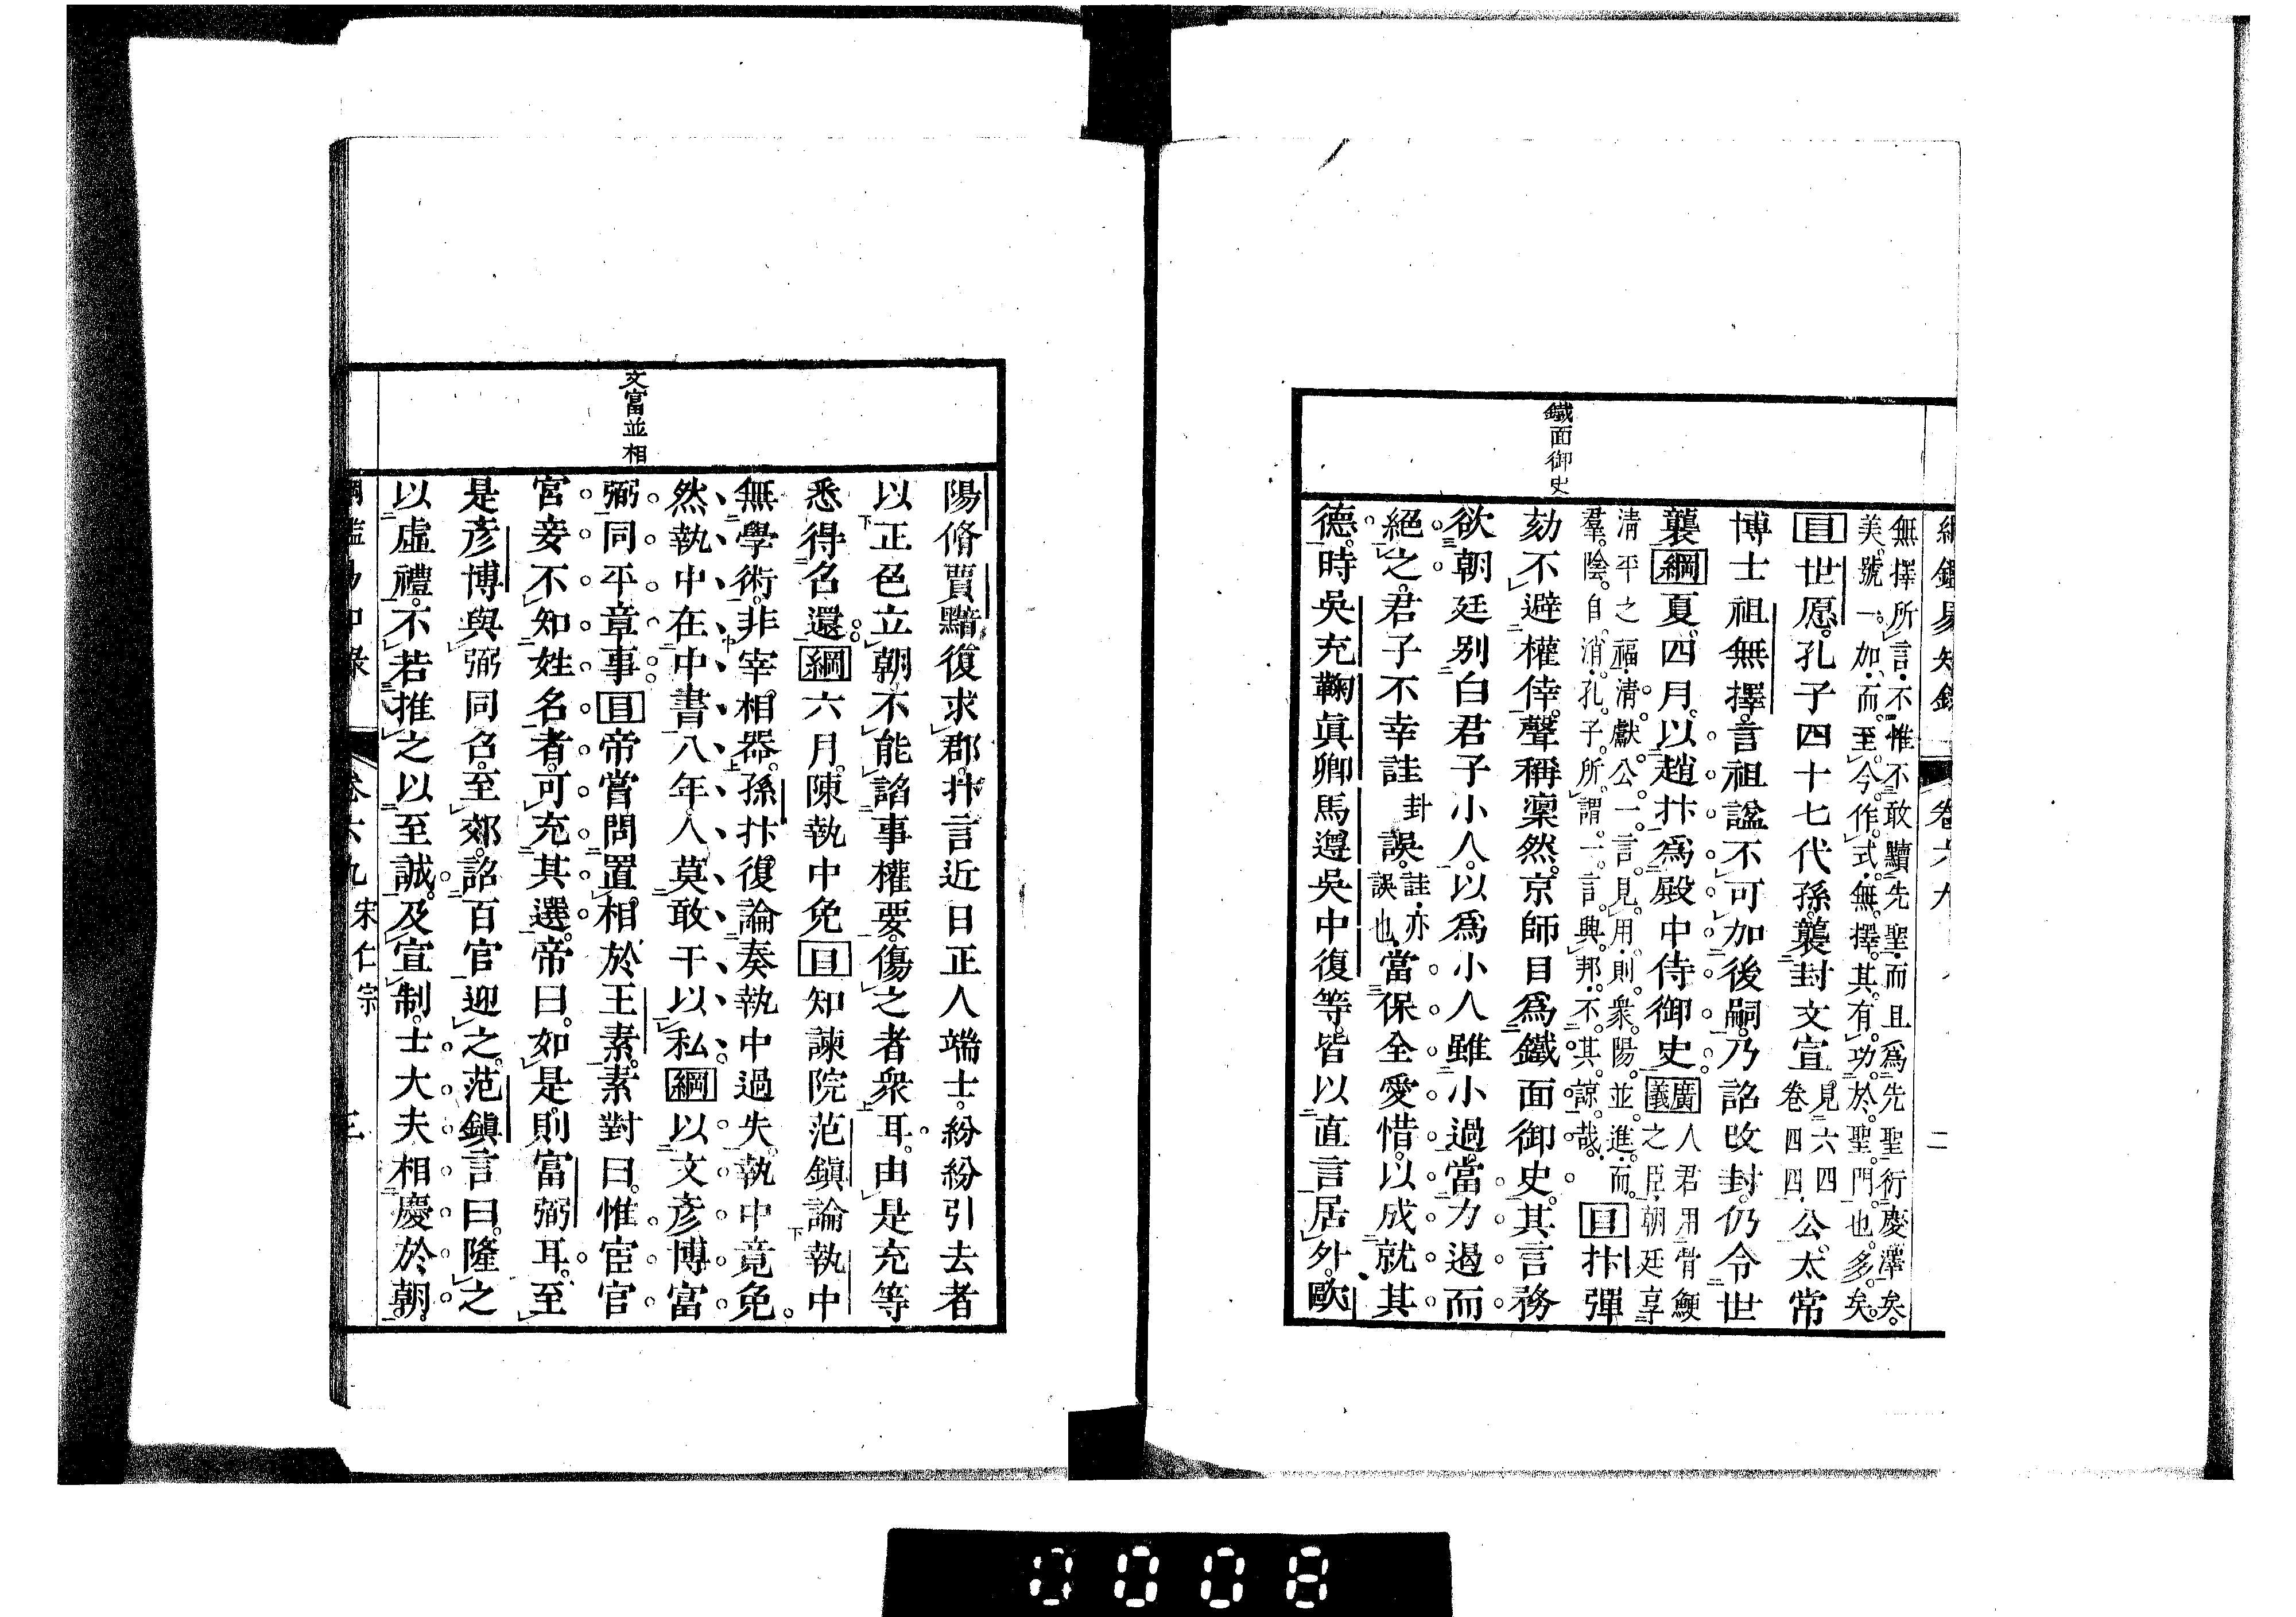 綱鑑易知錄 卷六九 二
鐵面御史
無擇所言不惟不敢黷先聖而且爲先聖衍慶澤矣
美號一加而至今作式無擇其有功於聖門也多矣
目世愿孔子四十七代孫襲封文宣見六四卷四四公太常
博士祖無擇言祖諡不可加後嗣乃詔改封仍令世
襲綱夏四月以趙抃爲殿中侍御史廣義人君用骨鯁之臣朝廷享
清平之福清獻公一言見用則衆陽並進而
羣陰自消孔子所謂一言興邦不其諒哉目抃彈
劾不避權倖聲稱凜然京師目爲鐵面御史其言務
欲朝廷別白君子小人以爲小人雖小過當力遏而
絕之君子不幸詿卦誤詿亦誤也當保全愛惜以成就其
德時吳充鞠眞卿馬遵吳中復等皆以直言居外歐
文富並相
陽脩賈黯復求郡抃言近日正人端士紛紛引去者
以正色立朝不能諂事權要傷之者衆耳由是充等
悉得召還綱六月陳執中免目知諫院范鎭論執中
無學術非宰相器孫抃復論奏執中過失執中竟免
然執中在中書八年人莫敢干以私綱以文彥博富
弼同平章事目帝嘗問置相於王素素對曰惟宦官
宮妾不知姓名者可充其選帝曰如是則富弼耳至
是彥博與弼同召至郊詔百官迎之范鎭言曰隆之
以虛禮不若推之以至誠及宣制士大夫相慶於朝
綱鑑易知錄 卷六九 宋仁宗 三
0008